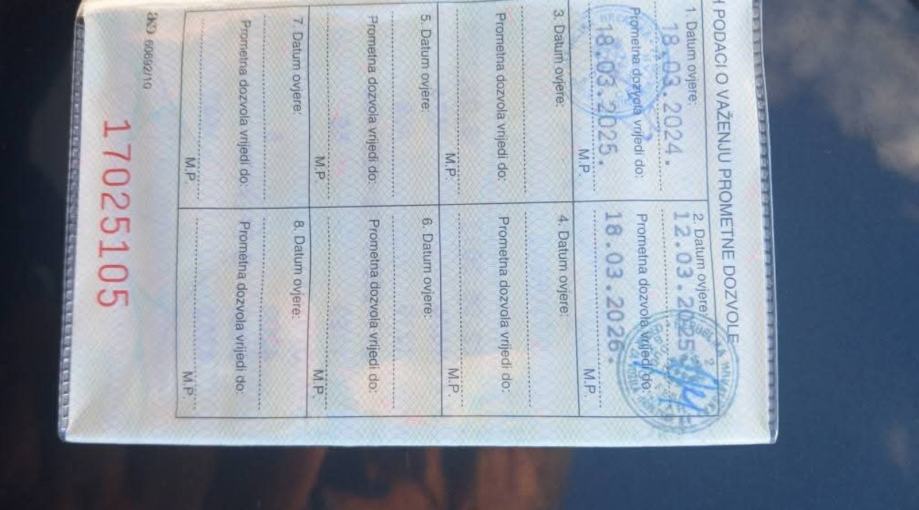 H PODACI O VAŽENJU PROMETNE DOZVOLE
1. Datum ovjere:
18.03.2024.
Prometna dozvola vrijedi do:
18.03.2025.
M.P.
2. Datum ovjere:
12.03.2025
Prometna dozvola vrijedi do:
18.03.2026.
M.P.
3. Datum ovjere:
Prometna dozvola vrijedi do:
M.P.
4. Datum ovjere:
Prometna dozvola vrijedi do:
M.P.
5. Datum ovjere:
Prometna dozvola vrijedi do:
M.P.
6. Datum ovjere:
Prometna dozvola vrijedi do:
M.P.
7. Datum ovjere:
Prometna dozvola vrijedi do:
M.P.
8. Datum ovjere:
Prometna dozvola vrijedi do:
M.P.
17025105